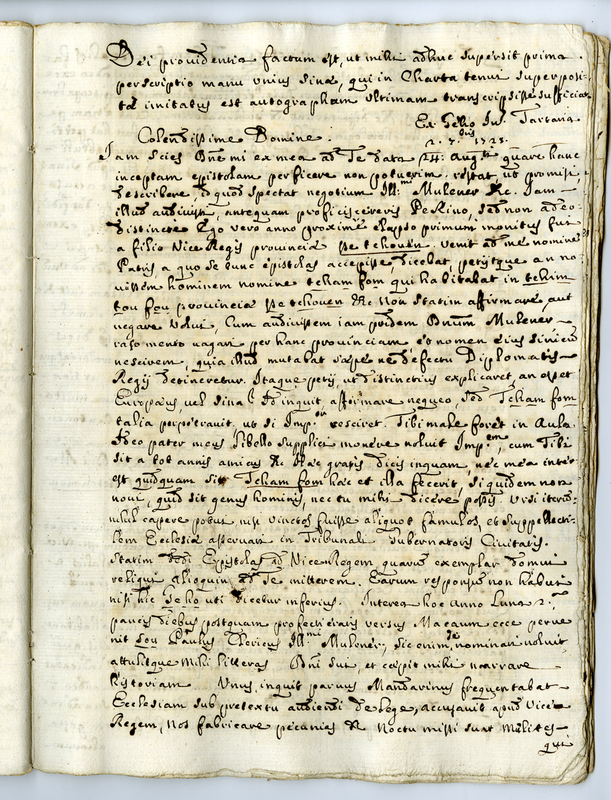 Dei providentia factum est, ut mihi adhuc supersit prima
perscriptio manu unius Sinae, qui in Charta tenui superposi-
ta imitatus est autographum ultimam transcripsisse sufficiat
Ex Geho In Tartaria
2. 7bris 1725.
Colendissime Domine.
Iam scies Dne mi ex mea ad Te data 24. Augti quare hanc
inceptam epistolam perficere non potuerim. restat, ut promisi,
describere, id quod spectat negotium Illmi Mulener &c. Jam
illud audivisti, antequam proficiscereris Pekino, sed non adeo
distincte. Ego vero anno proxime elapso primum monitus fui
a filio Vice Regis provinciae se tchouen, venit ad me nomine
Patris a quo se tunc epistolas accepisse dicebat, petiitque an no-
vissem hominem nomine tcham fom qui habitabat in tchim
tou fou provinciae se tchouen &c Non statim affirmare, aut
negare volui, Cum audivissem iam pridem Dnum Mulener
raso mento vagari per hanc provinciam et nomen eius sinicum
nescirem, quia illud mutabat saepe ne defectu Diplomatis
Regii detineretur. Itaque petii, ut distinctius explicaret, an esset
Europaeus, vel Sina? Id inquit, affirmare nequeo, sed Tcham fom
talia perpetravit, ut si Impor resciret. Tibi male foret in Aula.
Ideo pater meus libello supplici monere noluit Impem, cum Tibi
sit a tot annis amicus &c Haec gratis dicis inquam, nec mea inter-
est quidquam sit Tcham fom haec et illa fecerit, siquidem non
novi, quid sit genus hominis, nec tu mihi dicere potes. Visi iterum
nihil capere potui nisi vinctos fuisse aliquot famulos, et suppellecti-
lem Ecclesiae asservari in Tribunali Gubernatoris Civitatis.
Statim dedi Epistolas ad Vice Regem, quarum exemplar domi
reliqui alioquin ad Te mitterem. Earum responsum non habui
nisi hic Geho uti dicetur inferius. Interea hoc anno Luna 2.a
paucis diebus postquam profectus eras versus Macaum ecce perve-
nit sou Paulus Clericus Illmi Mulener, sic enim se nominari voluit,
attulitque mihi litteras Dni sui, et coepit mihi narrare
historiam. Unus, inquit parvus Mandarinus frequentabat
Ecclesiam sub pretextu audiendi de lege, accusavit apud Vice
Regem, Nos fabricare pecunias &c Noctu missi sunt milites
qui